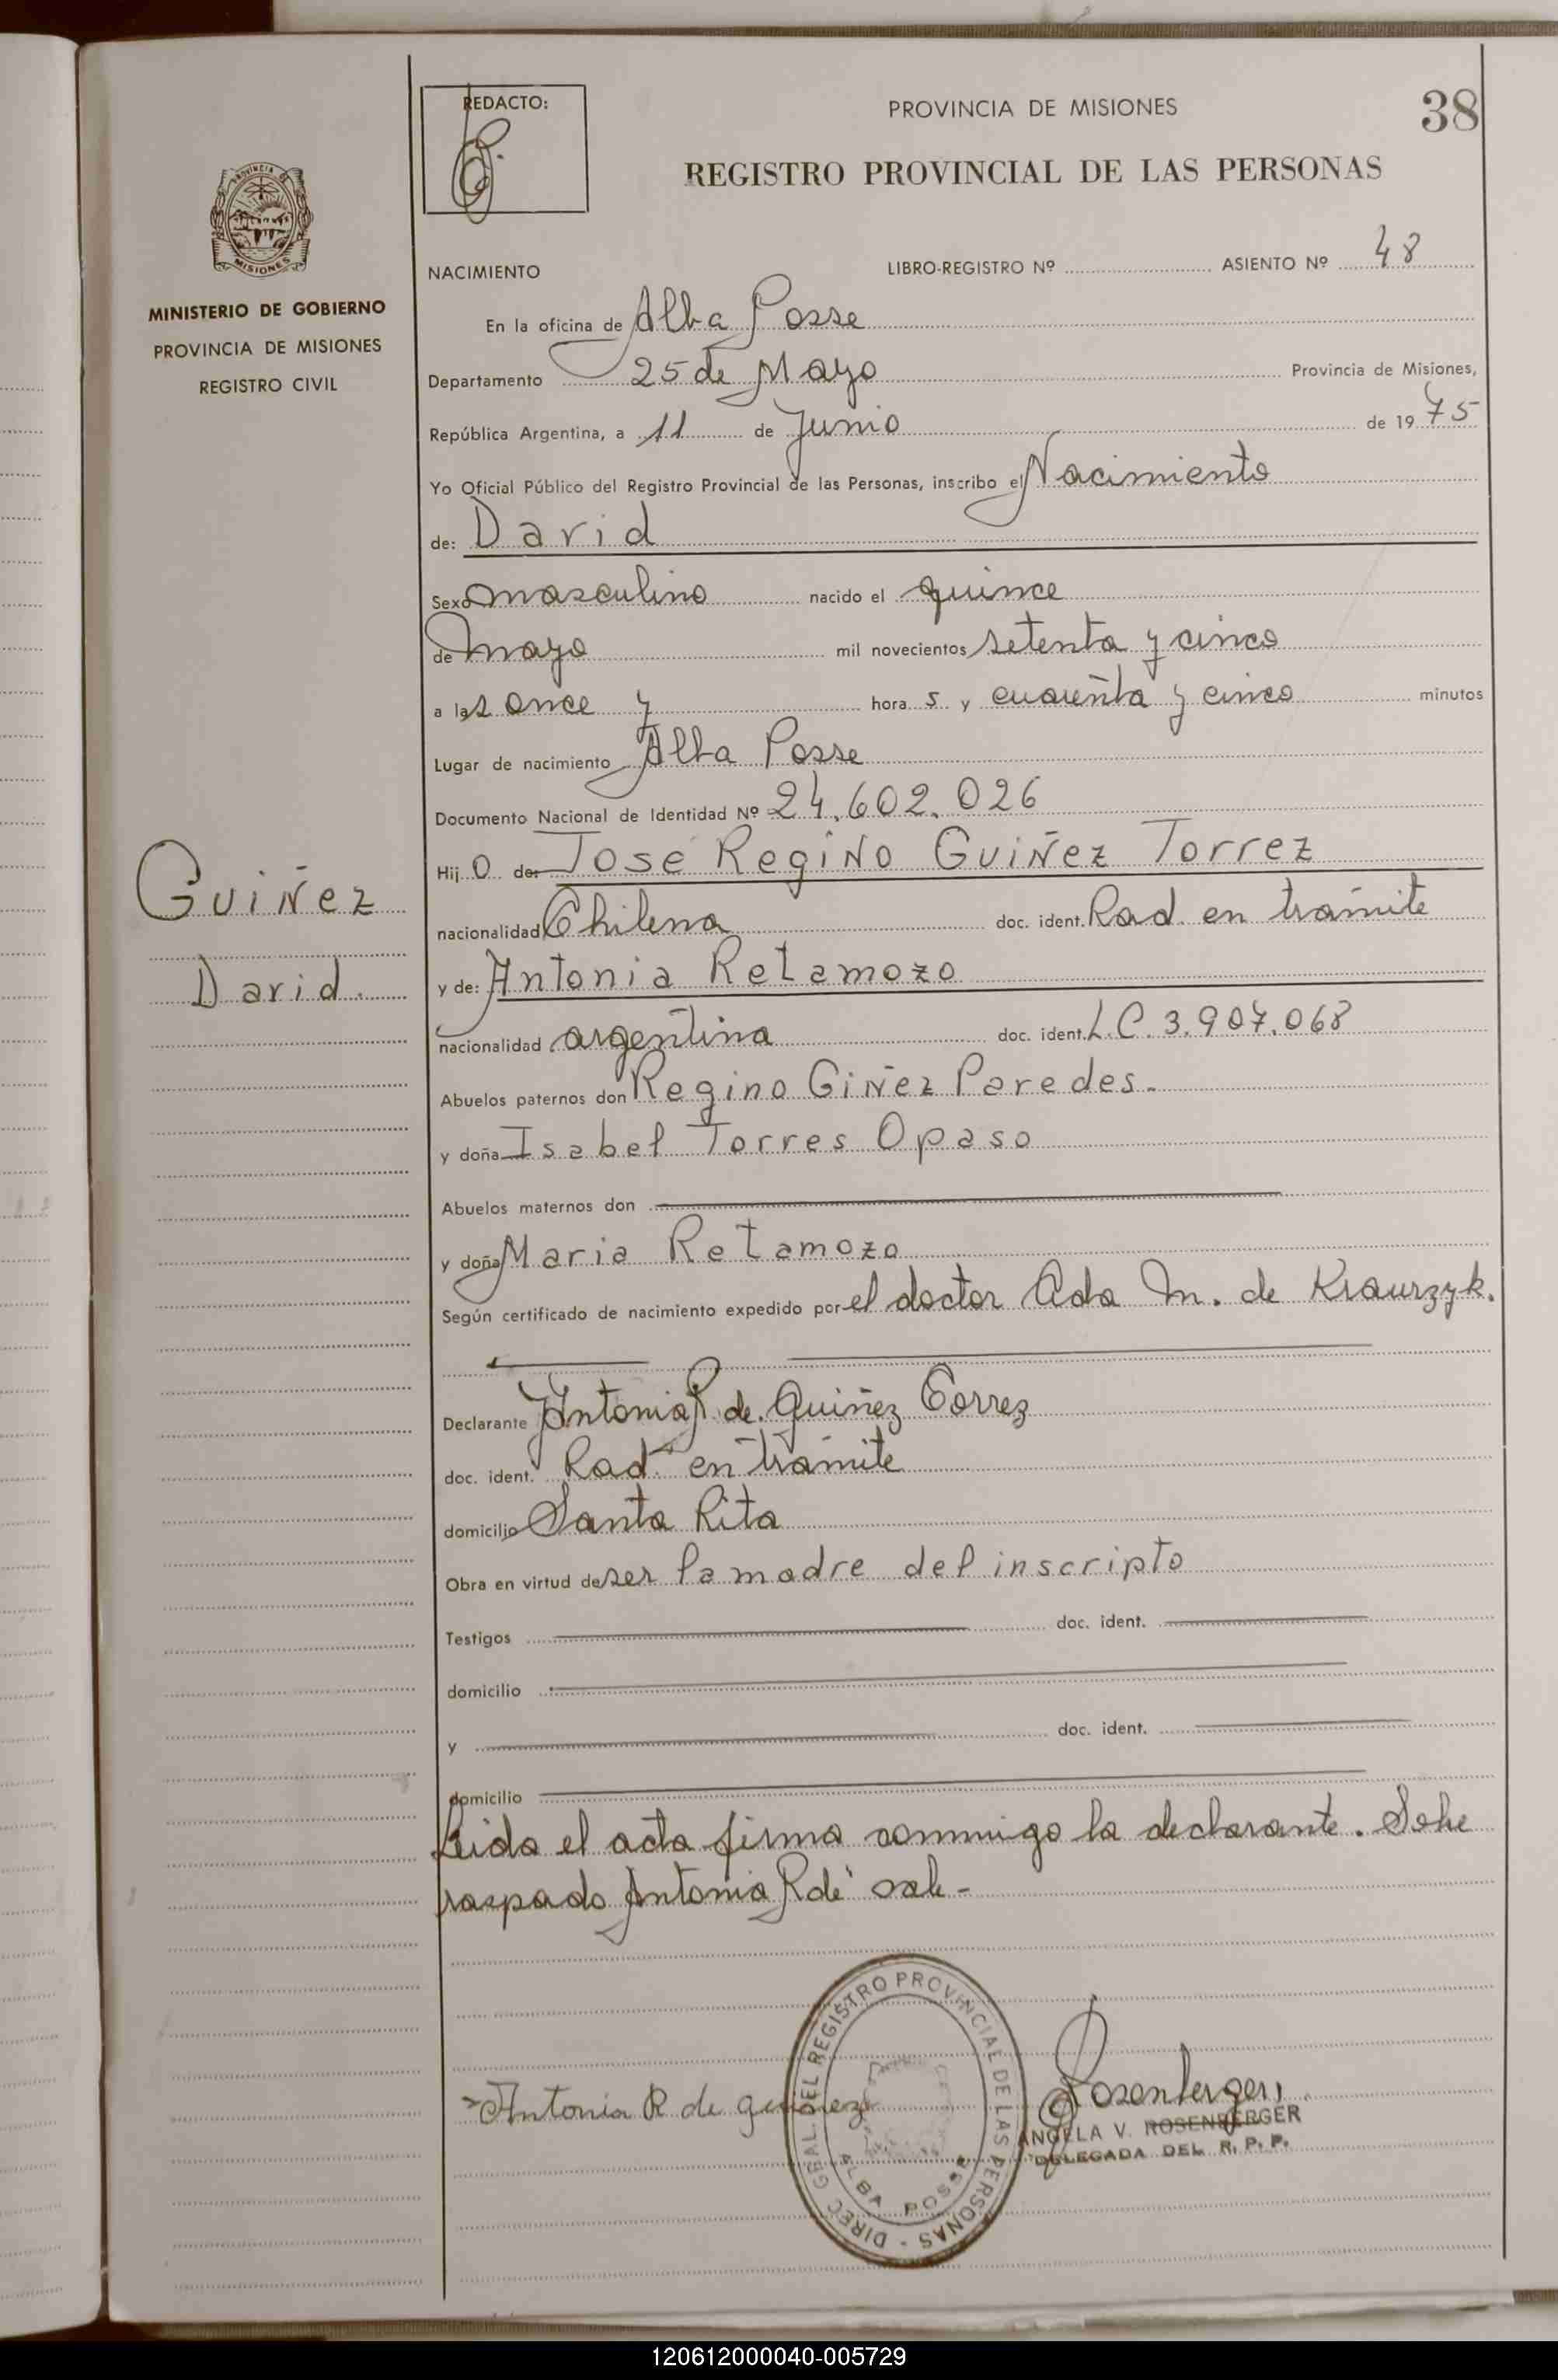 REDACTO:
PROVINCIA DE MISIONES
38
REGISTRO PROVINCIAL DE LAS PERSONAS
PROVINCIA DE
MISIONES
MINISTERIO DE GOBIERNO
PROVINCIA DE MISIONES
REGISTRO CIVIL
NACIMIENTO LIBRO-REGISTRO Nº ASIENTO Nº 48
En la oficina de Alba Posse
Departamento 25 de Mayo Provincia de Misiones,
República Argentina, a 11 de Junio de 1975
Yo Oficial Público del Registro Provincial de las Personas, inscribo el Nacimiento
de: David
Sexo masculino nacido el quince
de mayo mil novecientos setenta y cinco
a las once y hora s y cuarenta y cinco minutos
Lugar de nacimiento Alba Posse
Documento Nacional de Identidad Nº 24.602.026
Hij o de: José Regiño Guiñez Torrez
nacionalidad Chilena doc. ident. Rad. en trámite
y de: Antonia Retamozo
nacionalidad argentina doc. ident. L.C. 3.907.068
Abuelos paternos don Regino Giñez Paredes.
y doña Isabel Torres Opaso
Abuelos maternos don
y doña Maria Retamozo
Según certificado de nacimiento expedido por el doctor Ada M. de Kraurzyk.
Declarante Antonia R de Guiñez Torrez
doc. ident. Rad. en trámite
domicilio Santa Rita
Obra en virtud de ser la madre del inscripto
Testigos doc. ident.
domicilio
y doc. ident.
domicilio
Leida el acta firma conmigo la declarante. Sobre
raspado Antonia R de vale-
Guiñez
David.
Antonia R de guiñez
DIREC GRAL. DEL REGISTRO PROVINCIAL DE LAS PERSONAS -
ALBA POSSE
Rosenberger
ANGELA V. ROSENBERGER
DELEGADA DEL R. P. P.
120612000040-005729